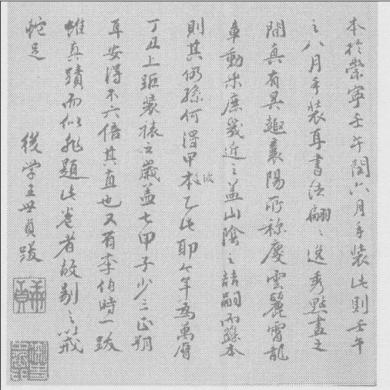 本於崇寧壬午閏六月手裝此則壬午
之八月手裝耳書法翩〻逸秀點畫之
間真有異趣襄陽所称慶雲麗霄龍
章動采庶幾近之盖山陰之喆嗣而蘇本
則其仍孫何得甲彼乙此耶今年為萬曆
丁丑上距裝褾之歲盖七甲子少三正朔
耳安得不六倍其直也又有李伯時一跋
雖真蹟而似非題此卷者故剔之以戒
蛇足
後學王世貞跋